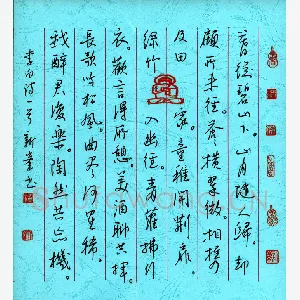 暮從碧山下。山月隨人歸。却
顧所来徑。蒼蒼橫翠微。相携
及田家。童稚開荆扉。
綠竹入幽徑。青蘿拂行
衣。歡言得所憩。美酒聊共揮。
長歌吟松風。曲尽河星稀。
我醉君復樂。陶然共忘機。
李白詩一首